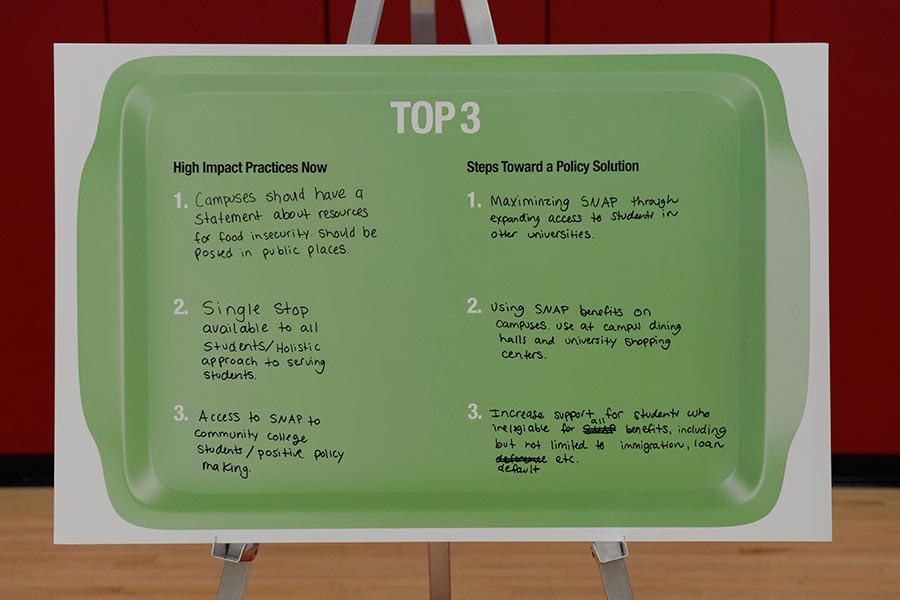 TOP 3
High Impact Practices Now
1. Campuses should have a
statement about resources
for food insecurity. Should be
posted in public places.
2. Single Stop
available to all
Students/Holistic
approach to serving
students.
3. Access to SNAP to
community college
students/positive policy
making.
Steps Toward a Policy Solution
1. Maximinzing SNAP through
expanding access to students in
other universities.
2. Using SNAP benefits on
campuses. use at campus dining
halls and university shopping
centers.
3. Increase support for students who
inelegiable for all benefits, including
but not limited to immigration, loan
default etc.